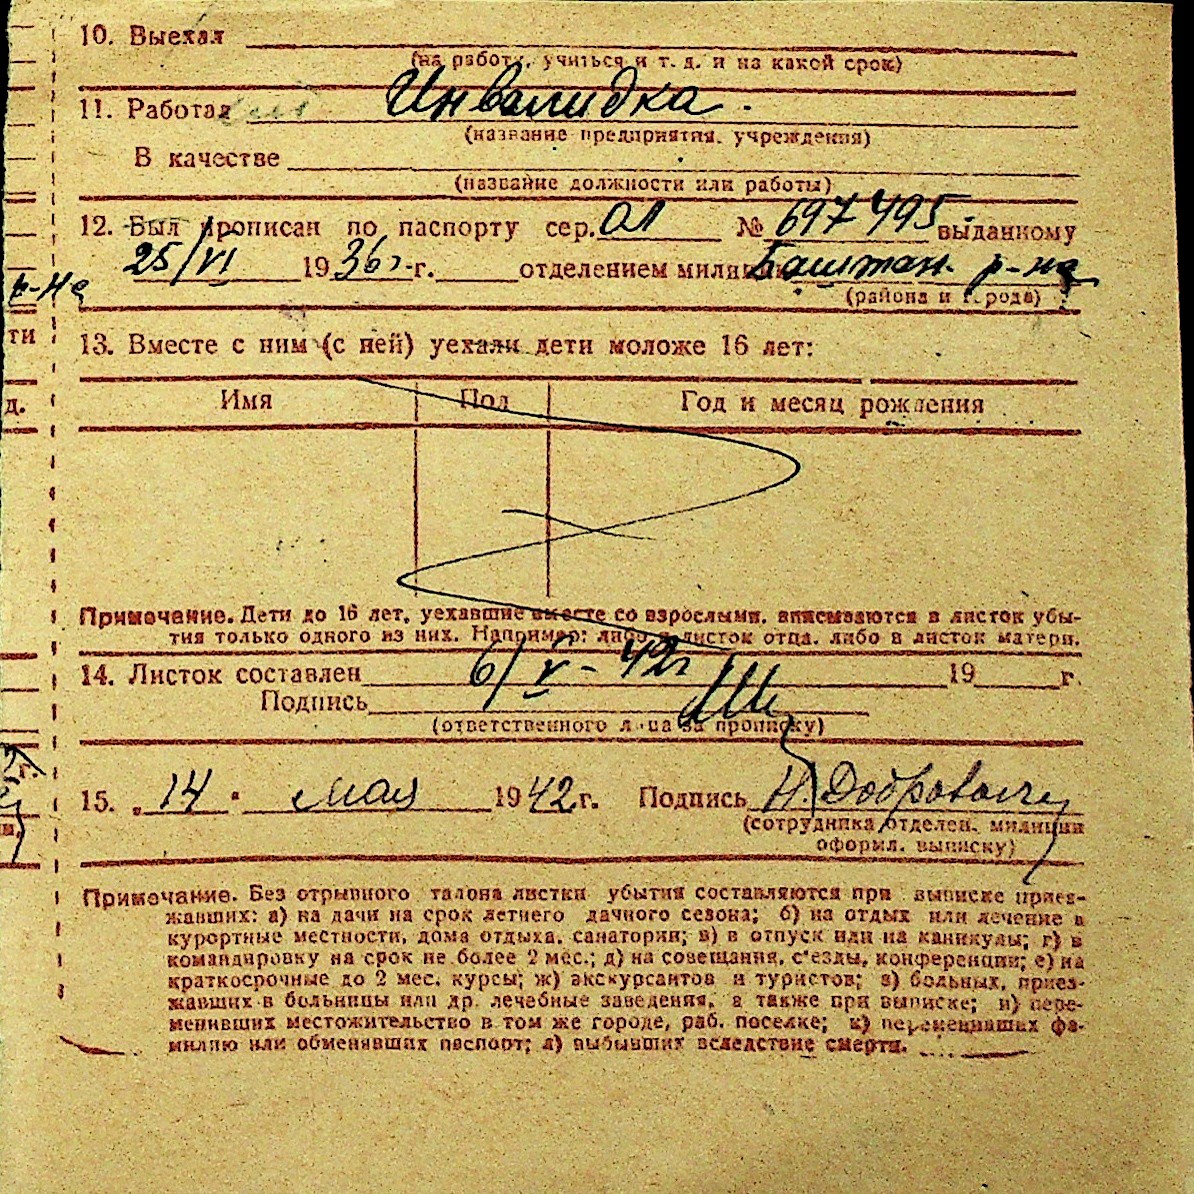 10. Выехал
(на работу, учиться и т. д. и на какой срок)
11. Работал Инвалидка.
(название предприятия, учреждения)
В качестве
(название должности или работы)
12. Был прописан по паспорту сер. ОЛ № 697495 выданному
р-на
25/VI 1936г.-г. отделением милиции Баштан. р-на
(района и города)
ти
13. Вместе с ним (с ней) уехали дети моложе 16 лет:
д.
Имя Пол Год и месяц рождения
Примечание. Дети до 16 лет, уехавшие вместе со взрослыми, вписываются в листок убы-
тия только одного из них. Например: либо в листок отца, либо в листок матери.
14. Листок составлен 6/V-42г 19 г.
Подпись
(ответственного лица за прописку)
г.
15. „14" мая 1942г. Подпись Н. Добровольч
(сотрудника отделен. милиции
оформл. выписку)
Примечание. Без отрывного талона листки убытия составляются при выписке приез-
жавших: а) на дачи на срок летнего дачного сезона; б) на отдых или лечение в
курортные местности, дома отдыха, санатории; в) в отпуск или на каникулы; г) в
командировку на срок не более 2 мес.; д) на совещания, с'езды, конференции; е) на
краткосрочные до 2 мес. курсы; ж) экскурсантов и туристов; з) больных, приез-
жавших в больницы или др. лечебные заведения, а также при выписке; и) пере-
менивших местожительство в том же городе, раб. поселке; к) переменивших фа-
милию или обменявших паспорт; л) выбывших вследствие смерти.